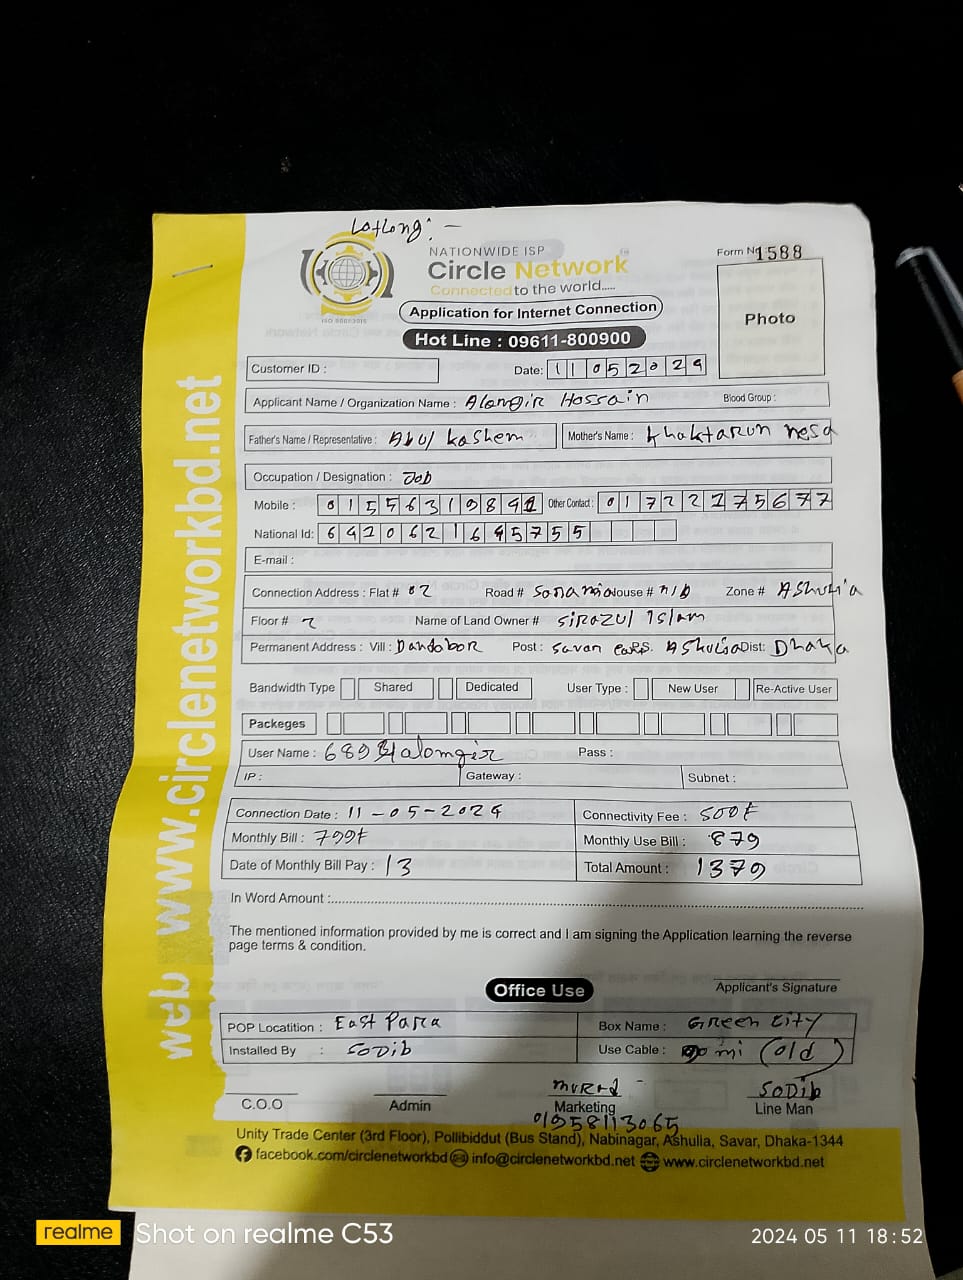 LotLong: -
NATIONWIDE ISP
Circle Network
Connected to the world.....
ISO 9001:2015
Form No 1588
Photo
Application for Internet Connection
Hot Line : 09611-800900
Customer ID :
Date: 11052024
Applicant Name / Organization Name : Alamgir Hossain Blood Group :
Father's Name / Representative : Abul Kashem Mother's Name : Khaktarun nesa
Occupation / Designation : Job
Mobile : Other Contact :
National Id:
E-mail :
Connection Address : Flat # 02 Road # Sonamia House # n/b Zone # AShulia
Floor # 2 Name of Land Owner # Sirazul Islam
Permanent Address : Vill : Dandabor Post : Savar AShulia Dist: Dhaka
Bandwidth Type Shared Dedicated User Type : New User Re-Active User
Packeges
User Name : alomgir Pass :
IP : Gateway : Subnet :
Connection Date : 11-05-2024 Connectivity Fee : 500৳
Monthly Bill : 799৳ Monthly Use Bill : 879
Date of Monthly Bill Pay : 13 Total Amount : 1379
In Word Amount :
The mentioned information provided by me is correct and I am signing the Application learning the reverse
page terms & condition.
Applicant's Signature
Office Use
POP Locatition : East Para Box Name : Green City
Installed By : SODib Use Cable : mi (old)
murad SODib
C.O.O Admin Marketing Line Man
01958113065
Unity Trade Center (3rd Floor), Pollibiddut (Bus Stand), Nabinagar, Ashulia, Savar, Dhaka-1344
facebook.com/circlenetworkbd info@circlenetworkbd.net www.circlenetworkbd.net
web www.circlenetworkbd.net
realme Shot on realme C53
2024 05 11 18:52